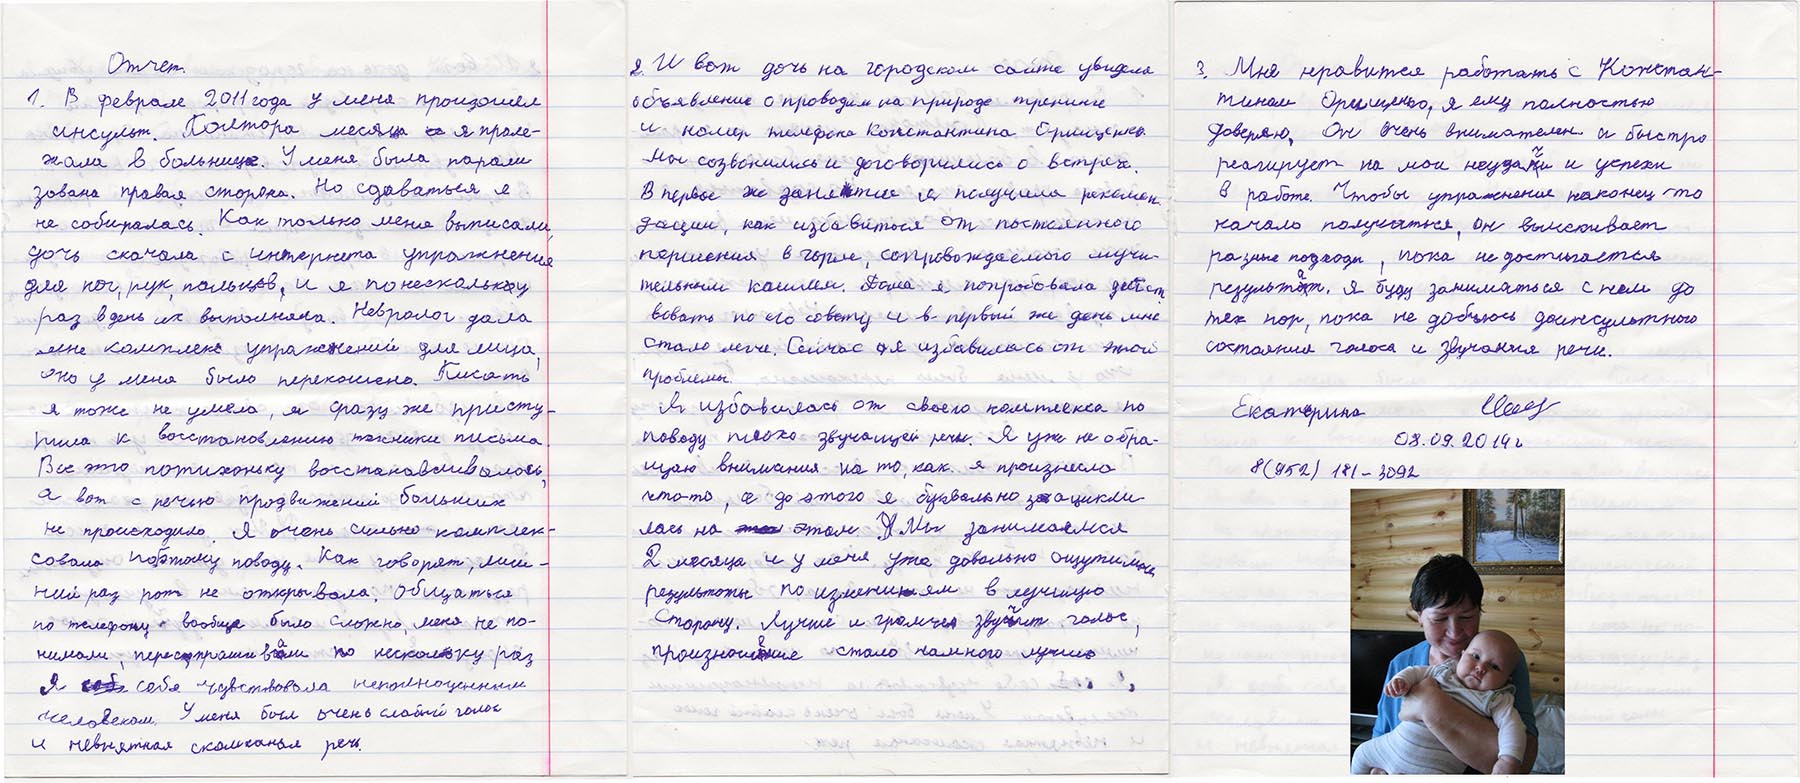 Отчет.
1. В феврале 2011 года у меня произошел
инсульт. Полтора месяца я проле-
жала в больнице. У меня была парали
зована правая сторона. Но сдаваться я
не собиралась. Как только меня выписали,
дочь скачала с интернета упражнения
для ног, рук, пальцев, и я по несколько
раз в день их выполняла. Невролог дала
мне комплекс упражнений для лица,
оно у меня было перекошено. Писать
я тоже не умела, я сразу же присту-
пила к восстановлению техники письма.
Все это потихоньку восстанавливалось,
а вот с речью продвижений больших
не происходило. Я очень сильно комплек-
совала поэтому поводу. Как говорят, лиш-
ний раз рот не открывала. Общаться
по телефону вообще было сложно, меня не по-
нимали, переспрашивали по нескольку раз
Я себя чувствовала неполноценным
человеком. У меня был очень слабый голос
и невнятная скомканая речь.
2. И вот дочь на городском сайте увидела
объявление о проводим на природе тренинге
и номер телефона Константина Орищенко.
Мы созвонились и договорились о встрече.
В первое же занятие я получила рекомен
дации, как избавиться от постоянного
першения в горле, сопровождаемого мучи-
тельным кашлем. Дома я попробовала действ
вовать по его совету и в первый же день мне
стало легче. Сейчас я избавилась от этой
проблемы.
Я избавилась от своего комплекса по
поводу плохо звучащей речи. Я уже не обра-
щаю внимания на то, как я произнесла
что-то, а до этого я буквально зацикли
лась на этом. Мы занимаемся
2 месяца и у меня уже довольно ощутимые
результаты по изменениям в лучшую
сторону. Лучше и громче звучит голос,
произношение стало намного лучше
3. Мне нравится работать с Констан-
тином Орищенко, я ему полностью
доверяю. Он очень внимателен и быстро
реагирует на мои неудачи и успехи
в работе. Чтобы упражнение наконец-то
начало получаться, он выискивает
разные подходы, пока не достигается
результат. Я буду заниматься с ним до
тех пор, пока не добьюсь доинсультного
состояния голоса и звучания речи.
Екатерина
03.09.2014 г
8(952) 181-3092